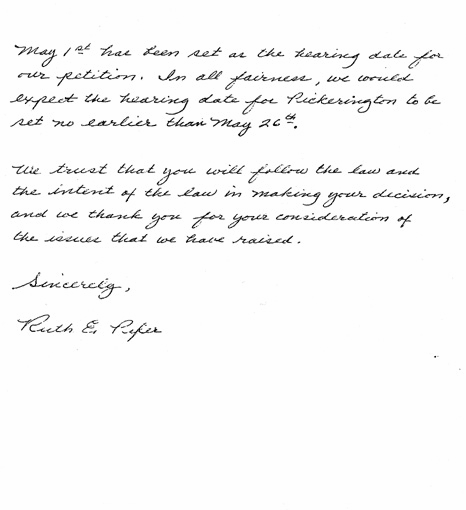 May 1st has been set as the hearing date for
our petition. In all fairness, we would
expect the hearing date for Pickerington to be
set no earlier than May 26th.
We trust that you will follow the law and
the intent of the law in making your decision,
and we thank you for your consideration of
the issues that we have raised.
Sincerely,
Ruth E. Piper